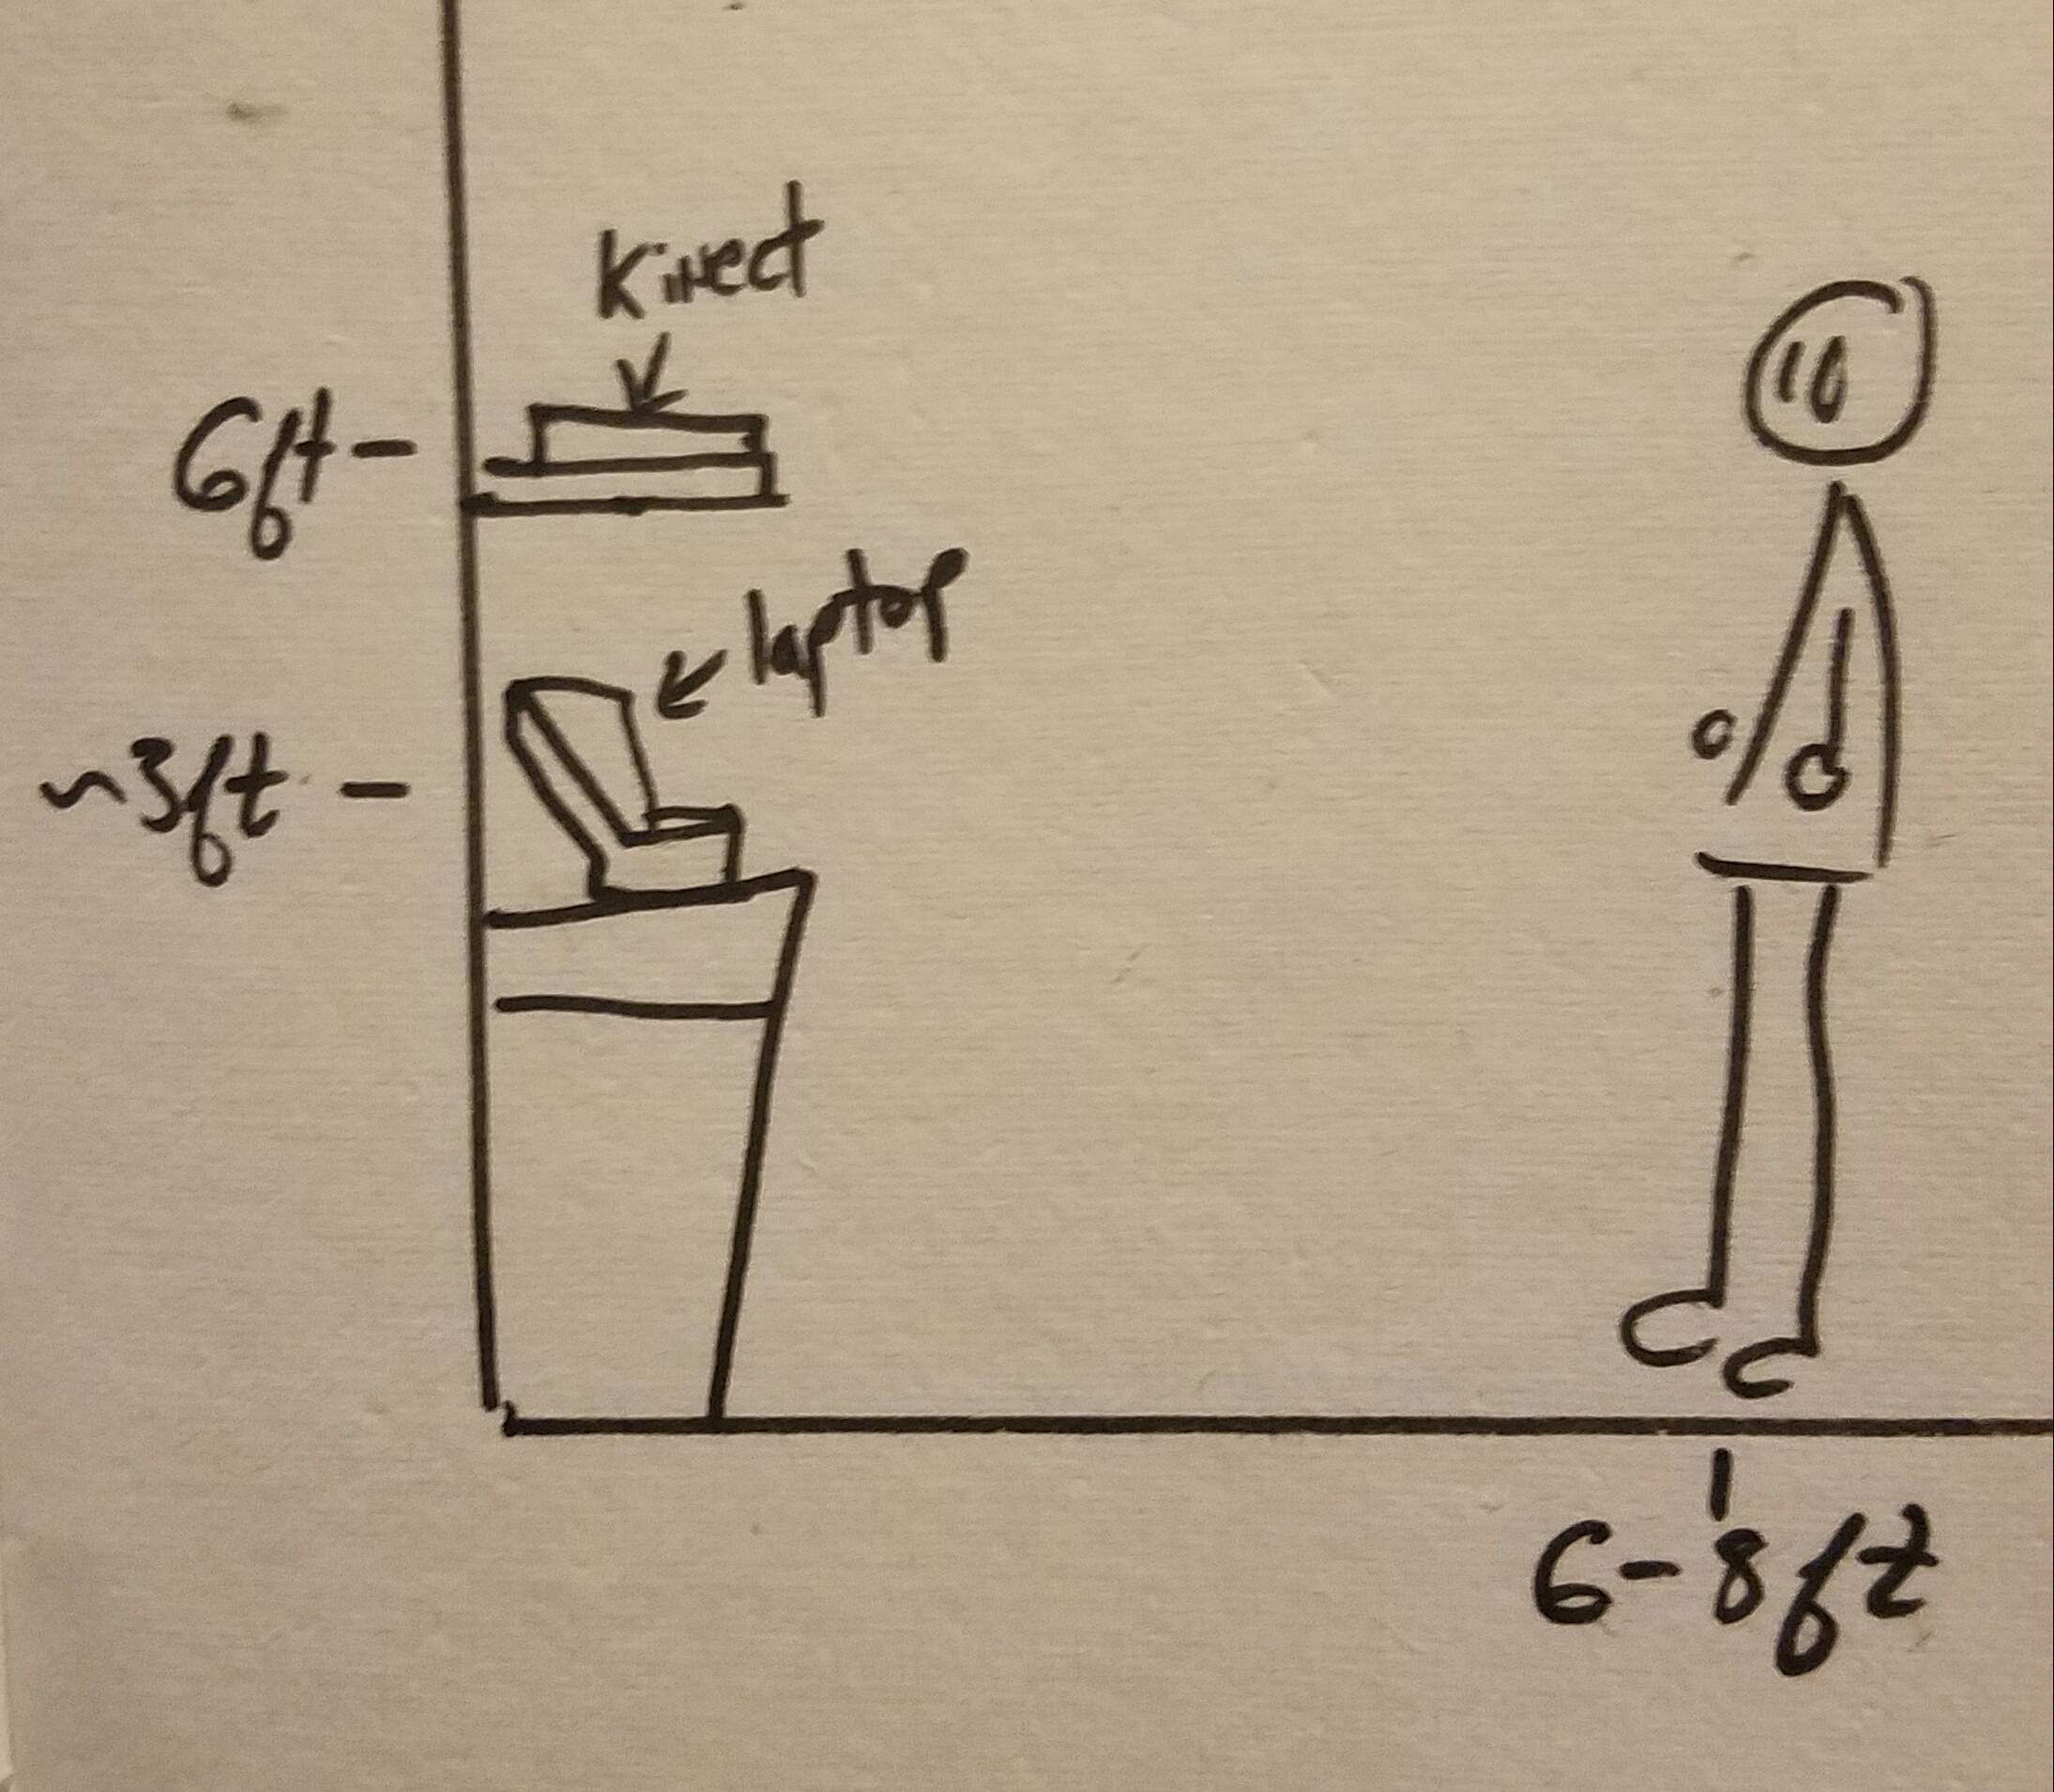 Kinect
6ft -
laptop
~3ft -
6-8ft